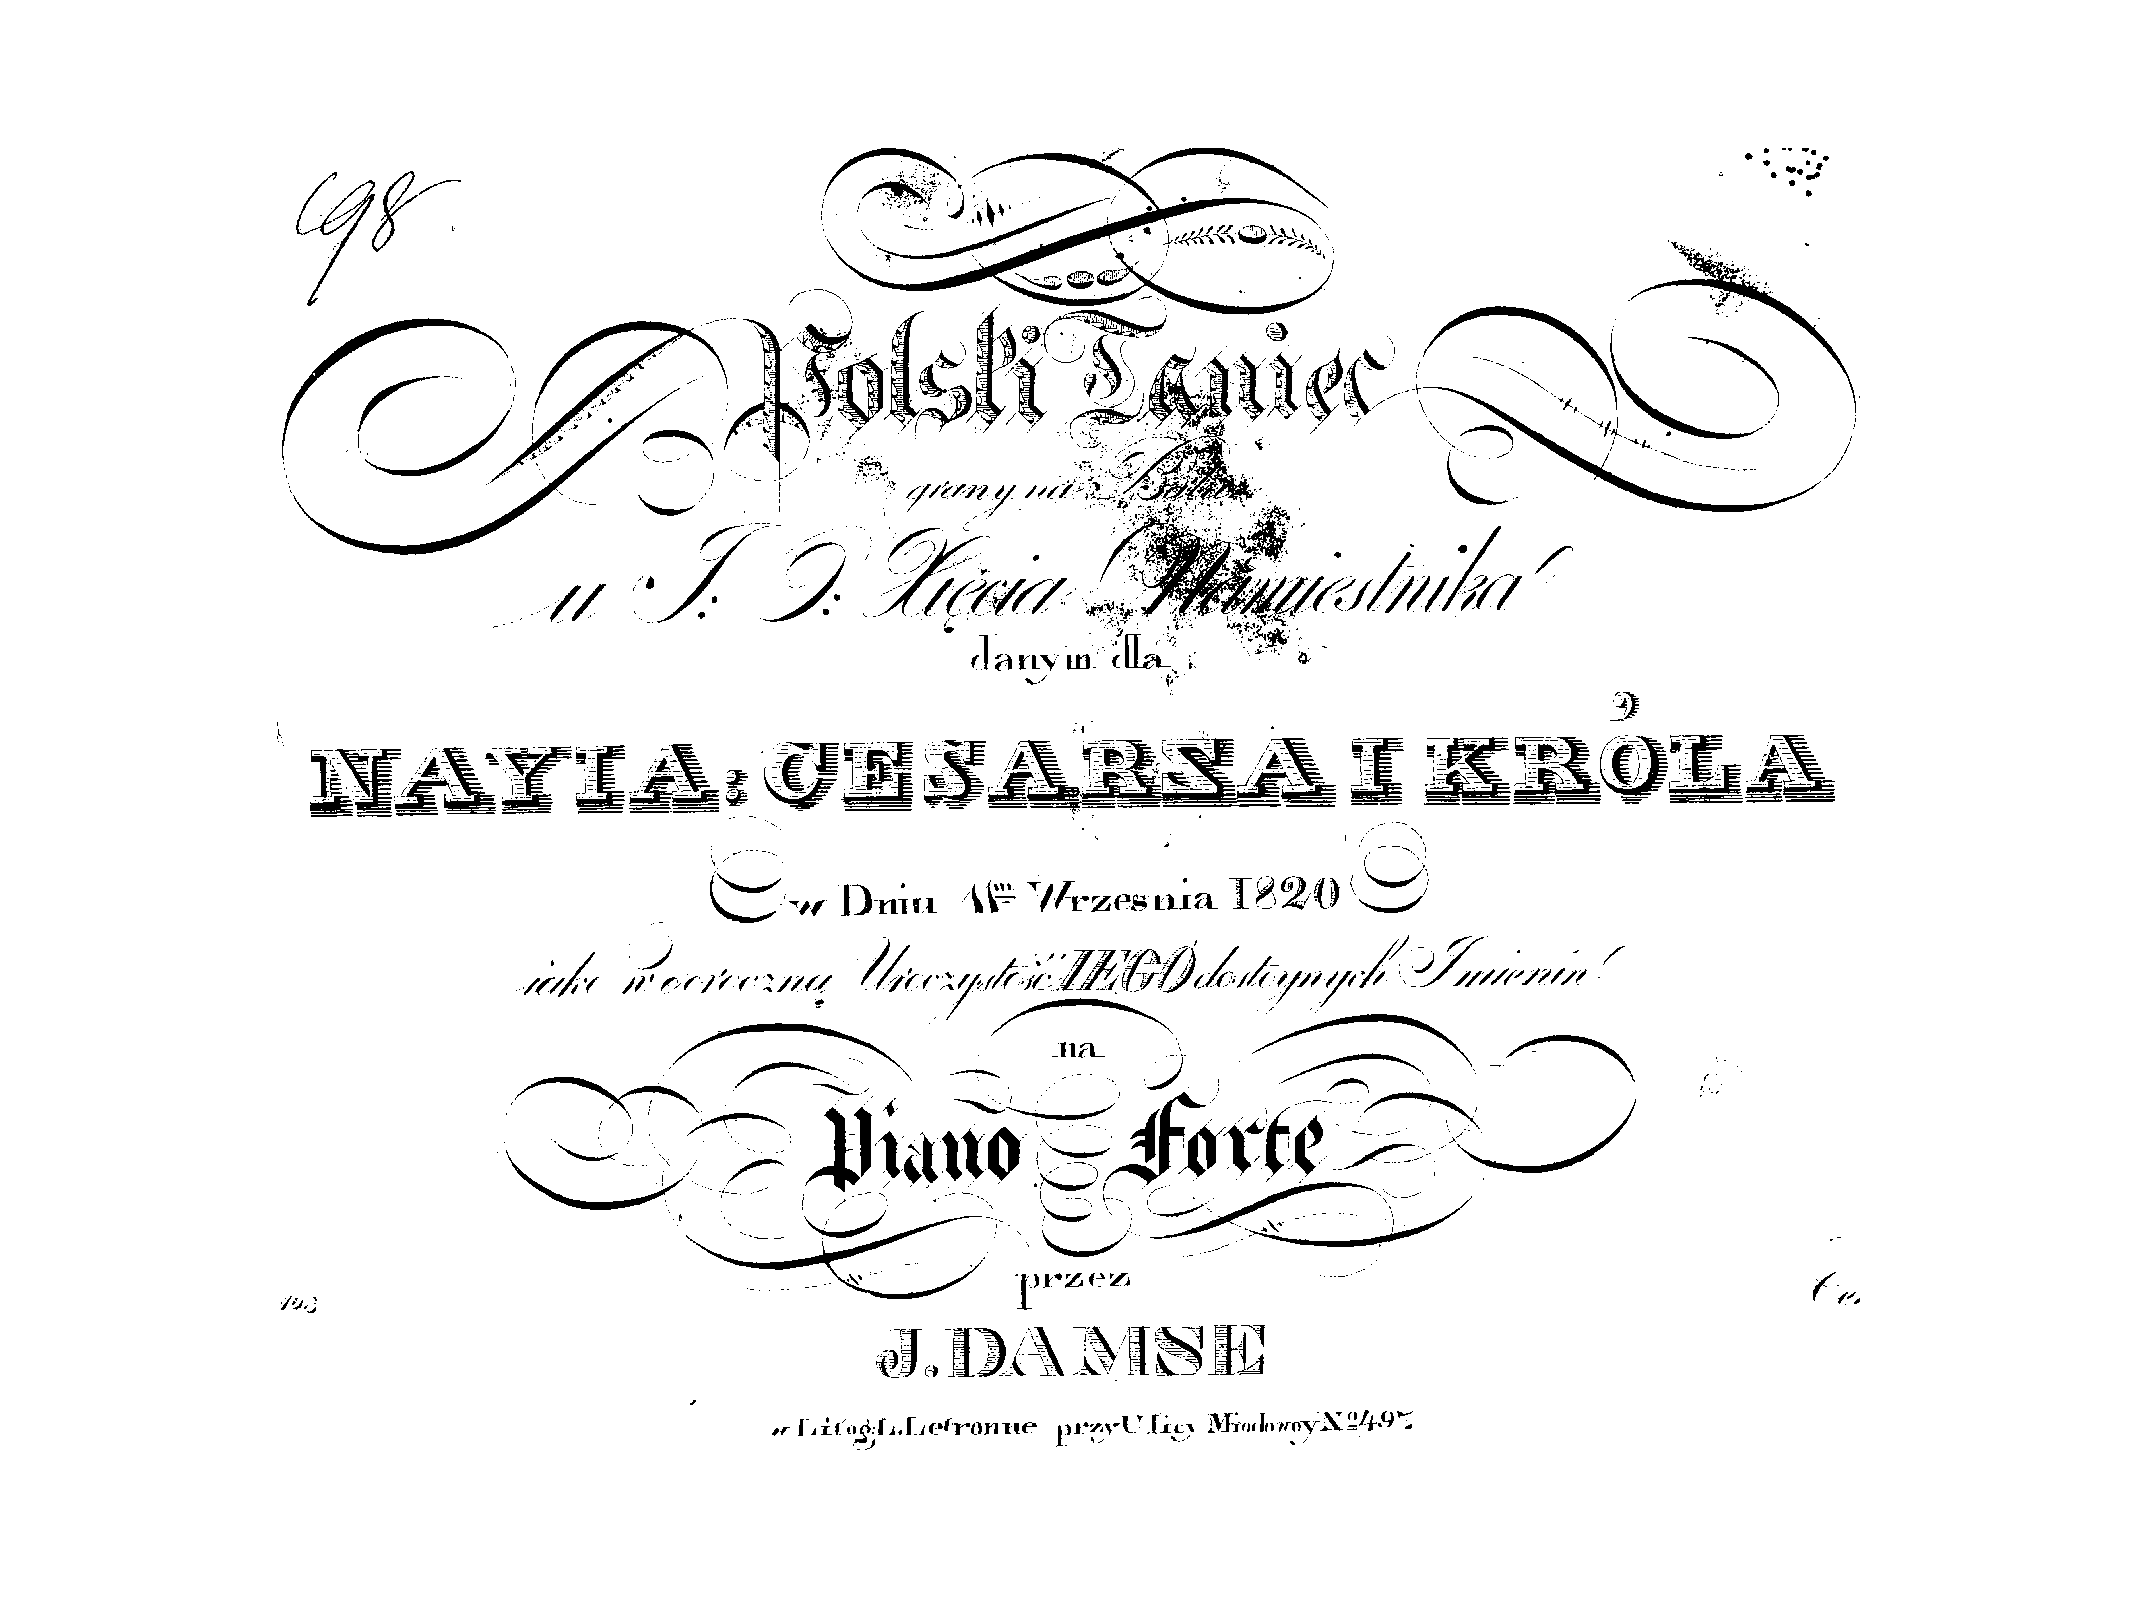 698.
Polski Taniec
grany na Balu
u J: O: Xięcia Namiestnika
danym dla
NAYIA: CESARZA I KRÓLA
w Dniu 11ᵐ Wrzesnia 1820
iako w coroczną Uroczystość IEGO dostoynych Imienin
na
Piano Forte
przez
J. DAMSE
w Litog: L. Letronne przy Ulicy Miodowey Nº 497